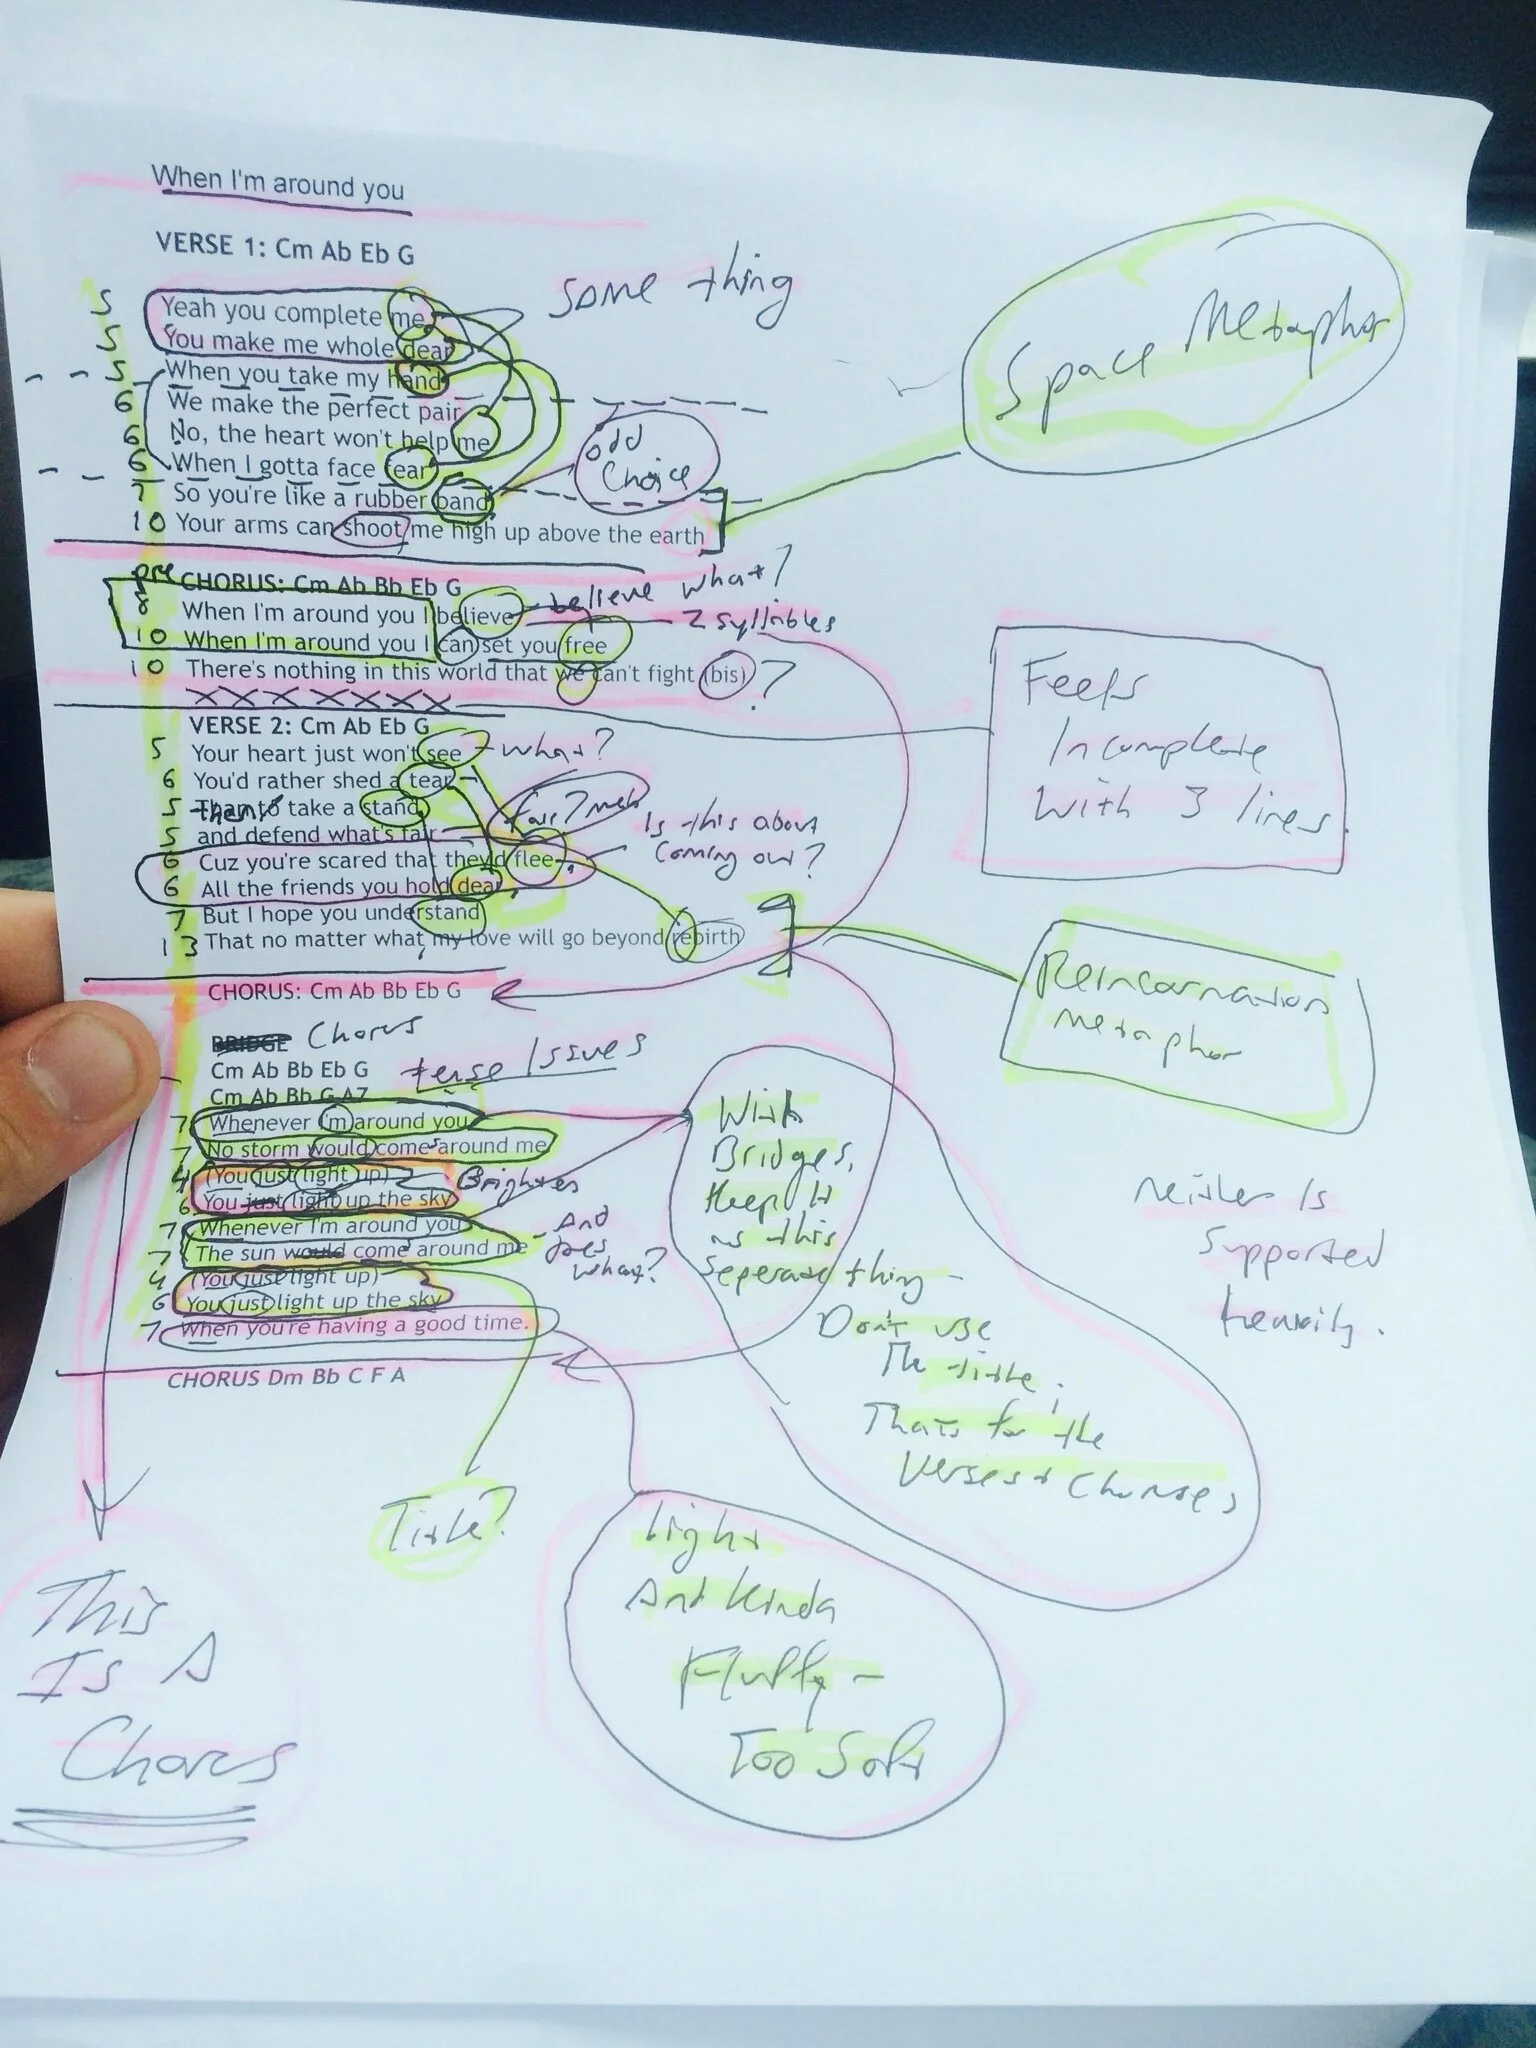 When I'm around you
VERSE 1: Cm Ab Eb G
same thing
5 Yeah you complete me
5 You make me whole dear
5 When you take my hand
6 We make the perfect pair
6 No, the heart won't help me
6 When I gotta face fear
7 So you're like a rubber band
10 Your arms can shoot me high up above the earth
odd
choice
Space Metaphor
pre CHORUS: Cm Ab Bb Eb G
8 When I'm around you I believe
believe what?
2 syllibles
10 When I'm around you I can set you free
10 There's nothing in this world that we can't fight (bis) ?
XXXXXXX
Feels
Incomplete
with 3 lines.
VERSE 2: Cm Ab Eb G
5 Your heart just won't see - what?
6 You'd rather shed a tear
5 Than to take a stand
5 and defend what's fair
fair? meh
6 Cuz you're scared that they'd flee
6 All the friends you hold dear
Is this about
coming out?
7 But I hope you understand
13 That no matter what, my love will go beyond rebirth
Reincarnation
metaphor
CHORUS: Cm Ab Bb Eb G
BRIDGE Chorus
Cm Ab Bb Eb G
tense Issues
Cm Ab Bb G A7
7 Whenever I'm around you
7 No storm would comes around me
4 (You just light up)
Brightes
6 You just light up the sky
7 Whenever I'm around you
7 The sun would come around me
- And
does
what?
4 (You just light up)
6 You just light up the sky
7 When you're having a good time.
CHORUS Dm Bb C F A
With
Bridges,
Keep It
as this
seperate thing -
Don't use
The title;
Thats for the
Verses + Choruses,
neither Is
supported
heavily.
Title?
Light
And Kinda
Fluffy -
Too Soft
This
Is A
Chorus